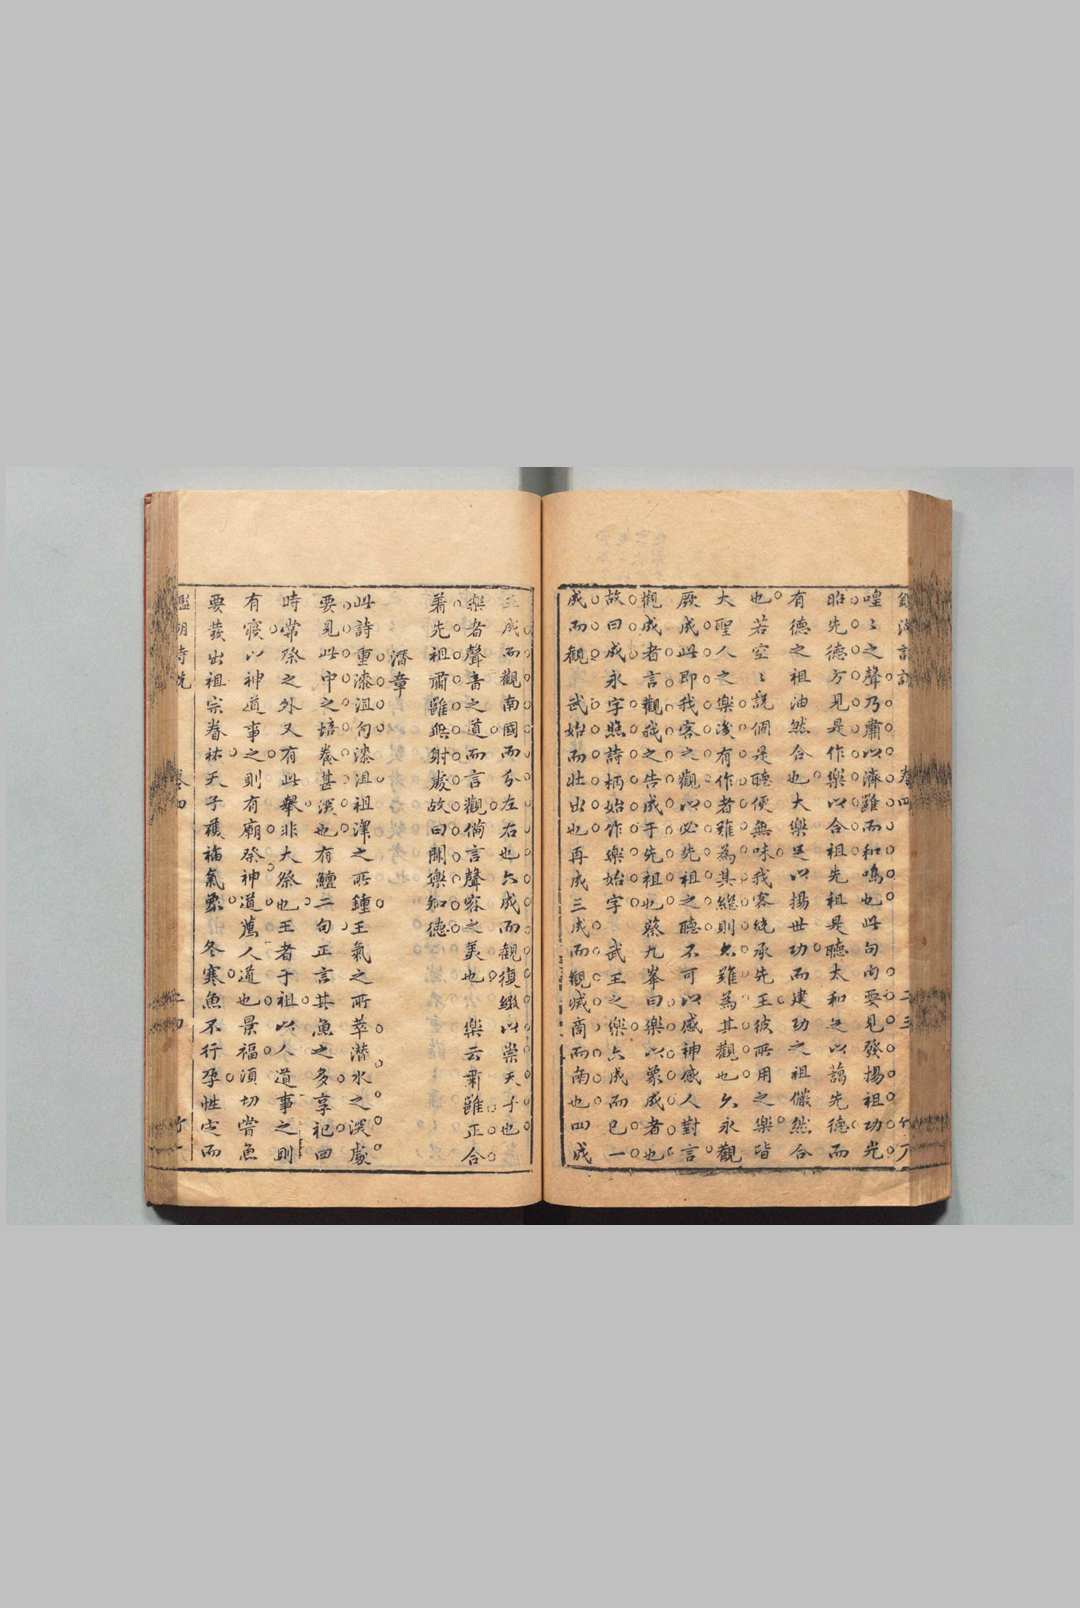 喤〻之聲乃肅以濟雖而和鳴也此句尚要見發揚祖功光
昭先德方見是作樂以合祖先祖是聽太和足以謁先德而
有德之祖油然合也大樂足以揚世功而建功之祖儼然合
也若空〻說個是聽便無味我客統承先王彼所用之樂皆
大聖人之樂後有作者雖為其繼則久雖為其觀也久永觀
厥成此即我客之觀以必先祖之聽不可以感神感人對言
觀成者言觀我之告成于先祖也蔡九峯曰樂以象成者也
故曰成永字照詩柄始作樂始字 武王之樂六成而已一
成而觀 武始而壯出也再成三成而觀滅商而南也四成
五成而觀南國而分左右也六成而觀復繼以崇天子也
樂者聲音之道而言觀倘言聲容之美也 樂云肅雖正合
著先祖肅雖無射處故曰聞樂知德
潛章
此詩重漆沮句漆沮祖澤之所鍾王氣之所萃潛水之深處
要見此中之培養甚深也有鱣二句正言其魚之多享祀四
時常祭之外又有此舉非大祭也王者于祖以人道事之則
有寢以神道事之則有廟祭神道萬人道也景福須切嘗魚
要發出祖宗眷祐天子穫福氣象 冬寒魚不行孕性定而
卷四
竹